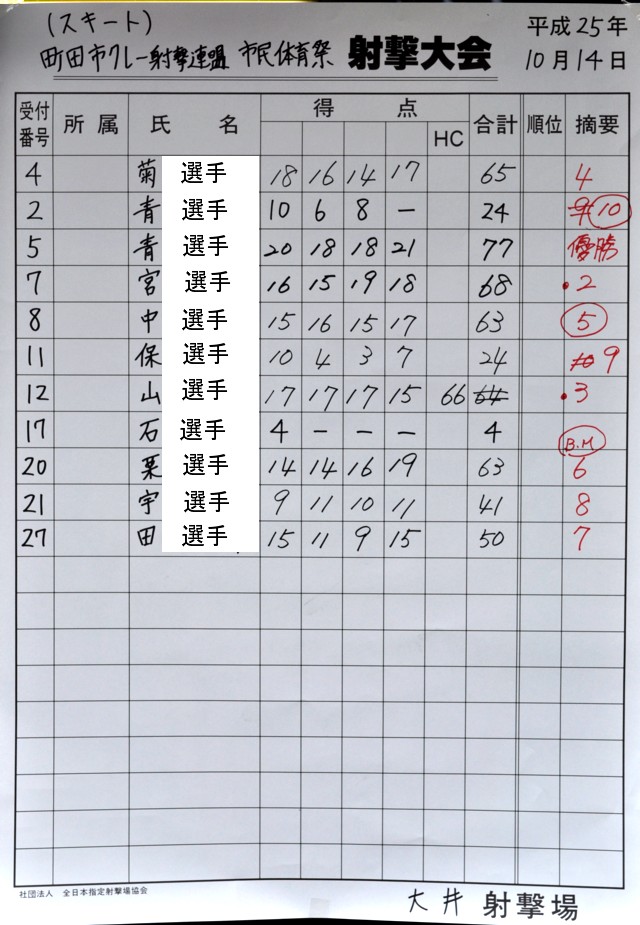 (スキート)
町田市クレー射撃連盟 市民体育祭 射撃大会
平成25年
10月14日
受付番号 所属 氏名 得点 HC 合計 順位 摘要
4 菊 選手 18 16 14 17 65 4
2 青 選手 10 6 8 － 24 9 10
5 青 選手 20 18 18 21 77 優勝
7 宮 選手 16 15 19 18 68 ・2
8 中 選手 15 16 15 17 63 5
11 保 選手 10 4 3 7 24 10 9
12 山 選手 17 17 17 15 66 64 ・3
17 石 選手 4 － － － 4 B.M
20 栗 選手 14 14 16 19 63 6
21 宇 選手 9 11 10 11 41 8
27 田 選手 15 11 9 15 50 7
社団法人 全日本指定射撃場協会
大井 射撃場